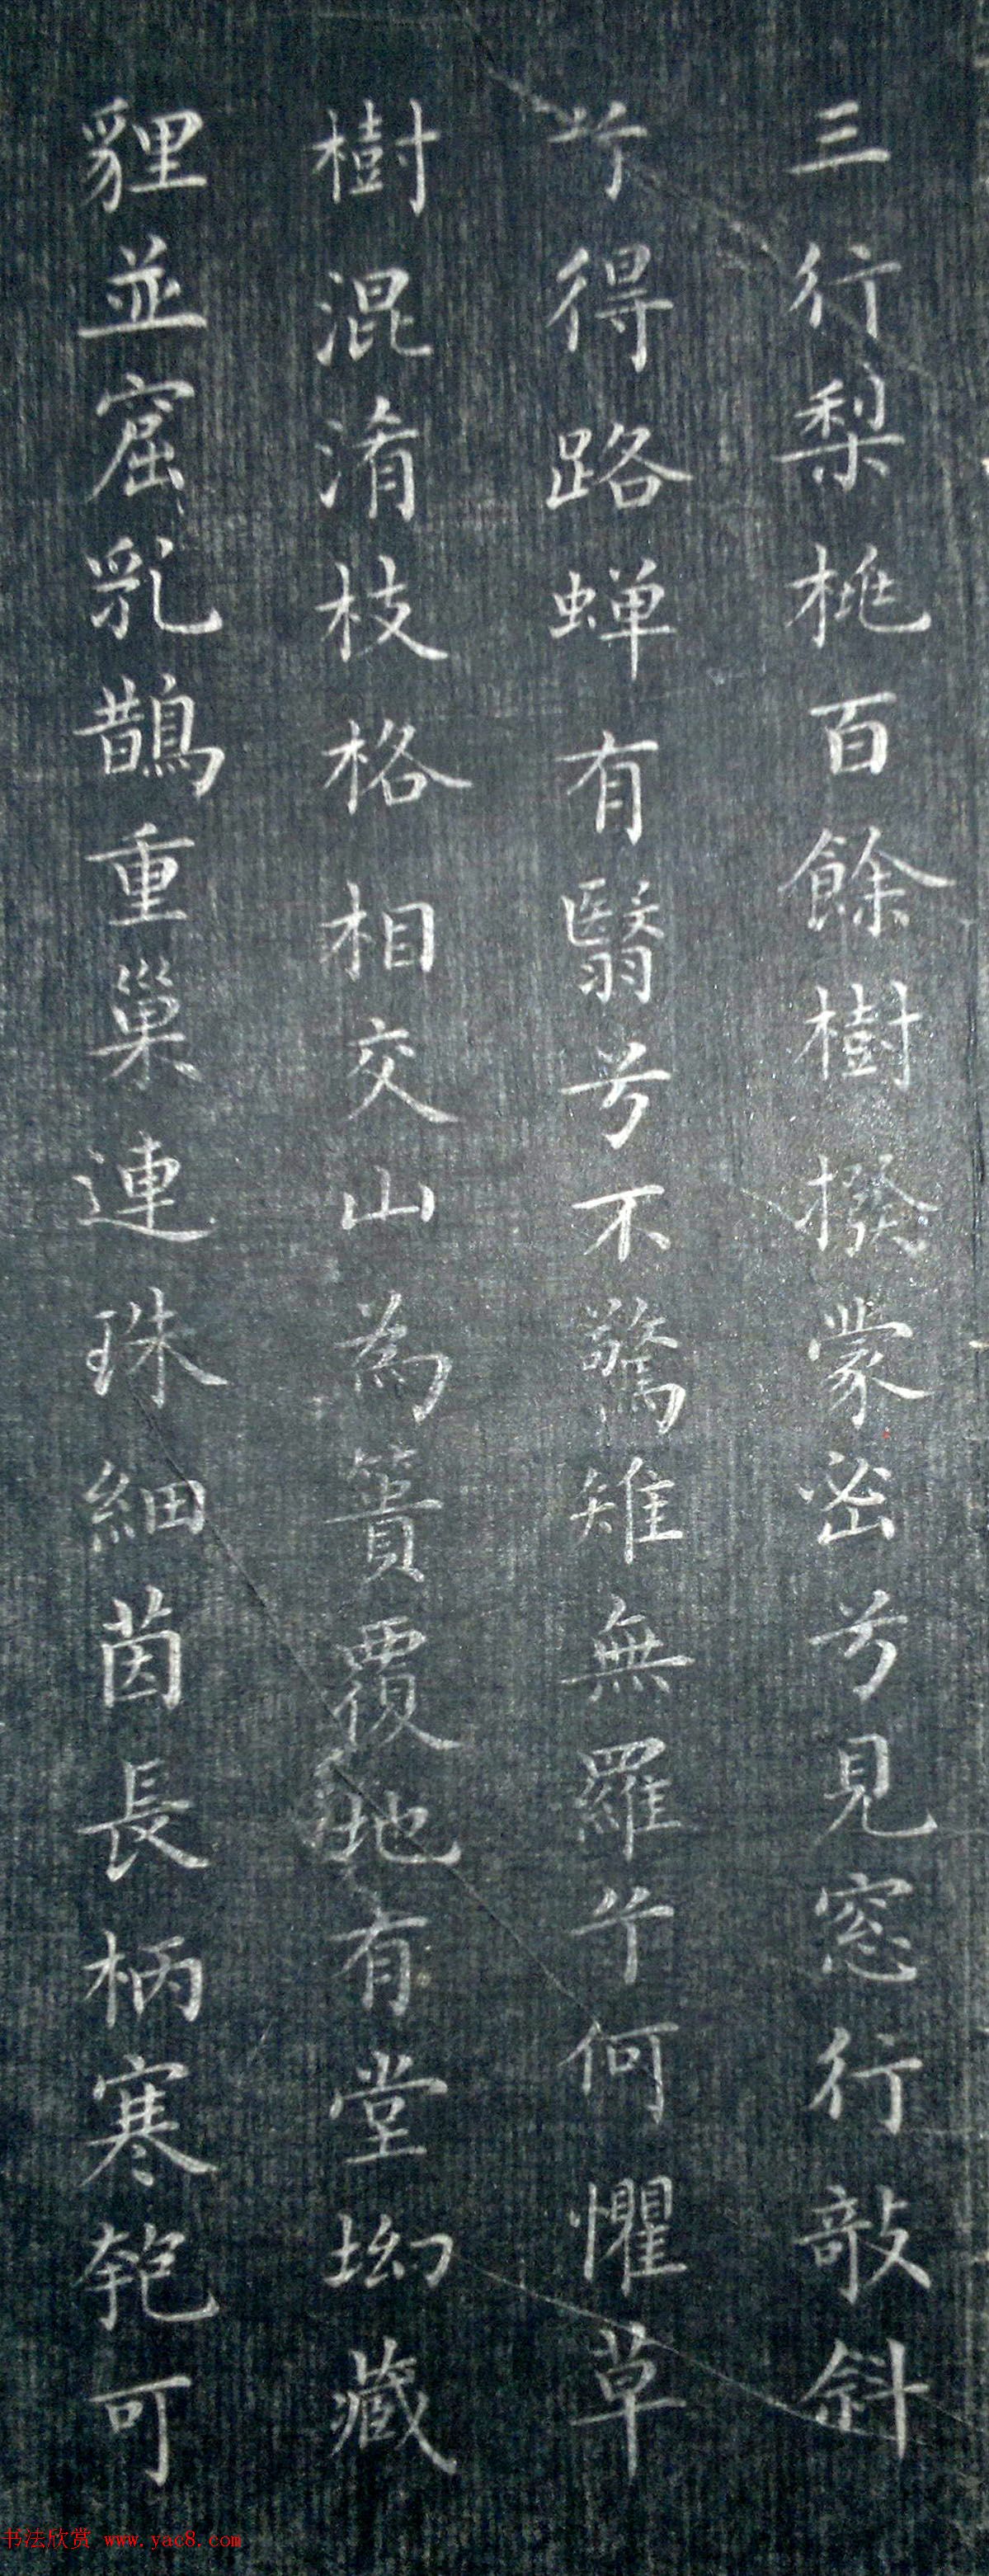 三行梨桃百餘樹撥蒙密兮見窓行敧斜
兮得路蝉有翳兮不驚雉無羅兮何懼草
樹混淆枝格相交山為簣覆地有堂坳藏
貍並窟乳鵲重巢連珠細茵長柄寒匏可
书法欣赏 www.yac8.com